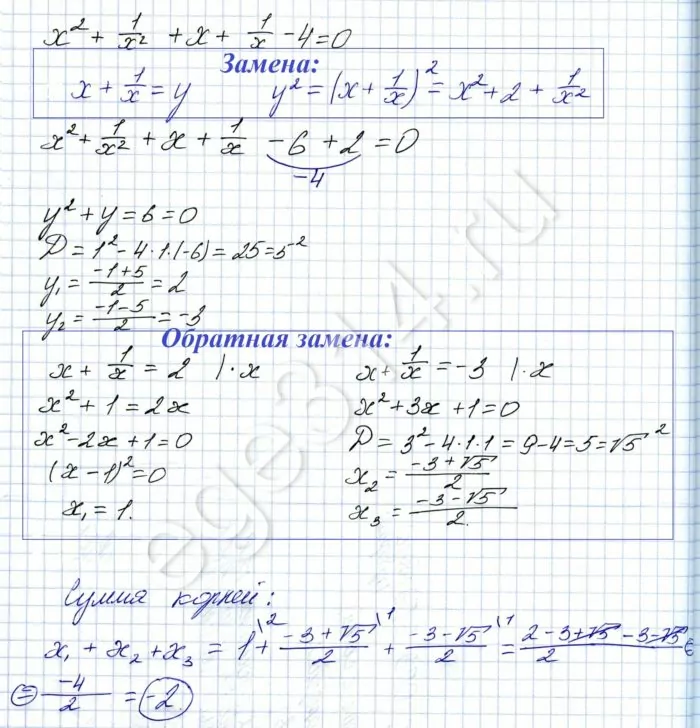 x² + 1/x² + x + 1/x - 4 = 0
Замена:
x + 1/x = y    y² = (x + 1/x)² = x² + 2 + 1/x²
x² + 1/x² + x + 1/x - 6 + 2 = 0
-4
y² + y = 6 = 0
D = 1² - 4·1·(-6) = 25 = 5²
y₁ = (-1+5)/2 = 2
y₂ = (-1-5)/2 = -3
Обратная замена:
x + 1/x = 2 |·x    x + 1/x = -3 |·x
x² + 1 = 2x    x² + 3x + 1 = 0
x² - 2x + 1 = 0    D = 3² - 4·1·1 = 9 - 4 = 5 = √5²
(x - 1)² = 0    x₂ = (-3 + √5)/2
x₁ = 1.    x₃ = (-3 - √5)/2.
Сумма корней:
x₁ + x₂ + x₃ = 1\² + (-3 + √5)/2\¹ + (-3 - √5)/2\¹ = (2 - 3 + √5 - 3 - √5)/2 =
= -4/2 = -2.
ege314.ru